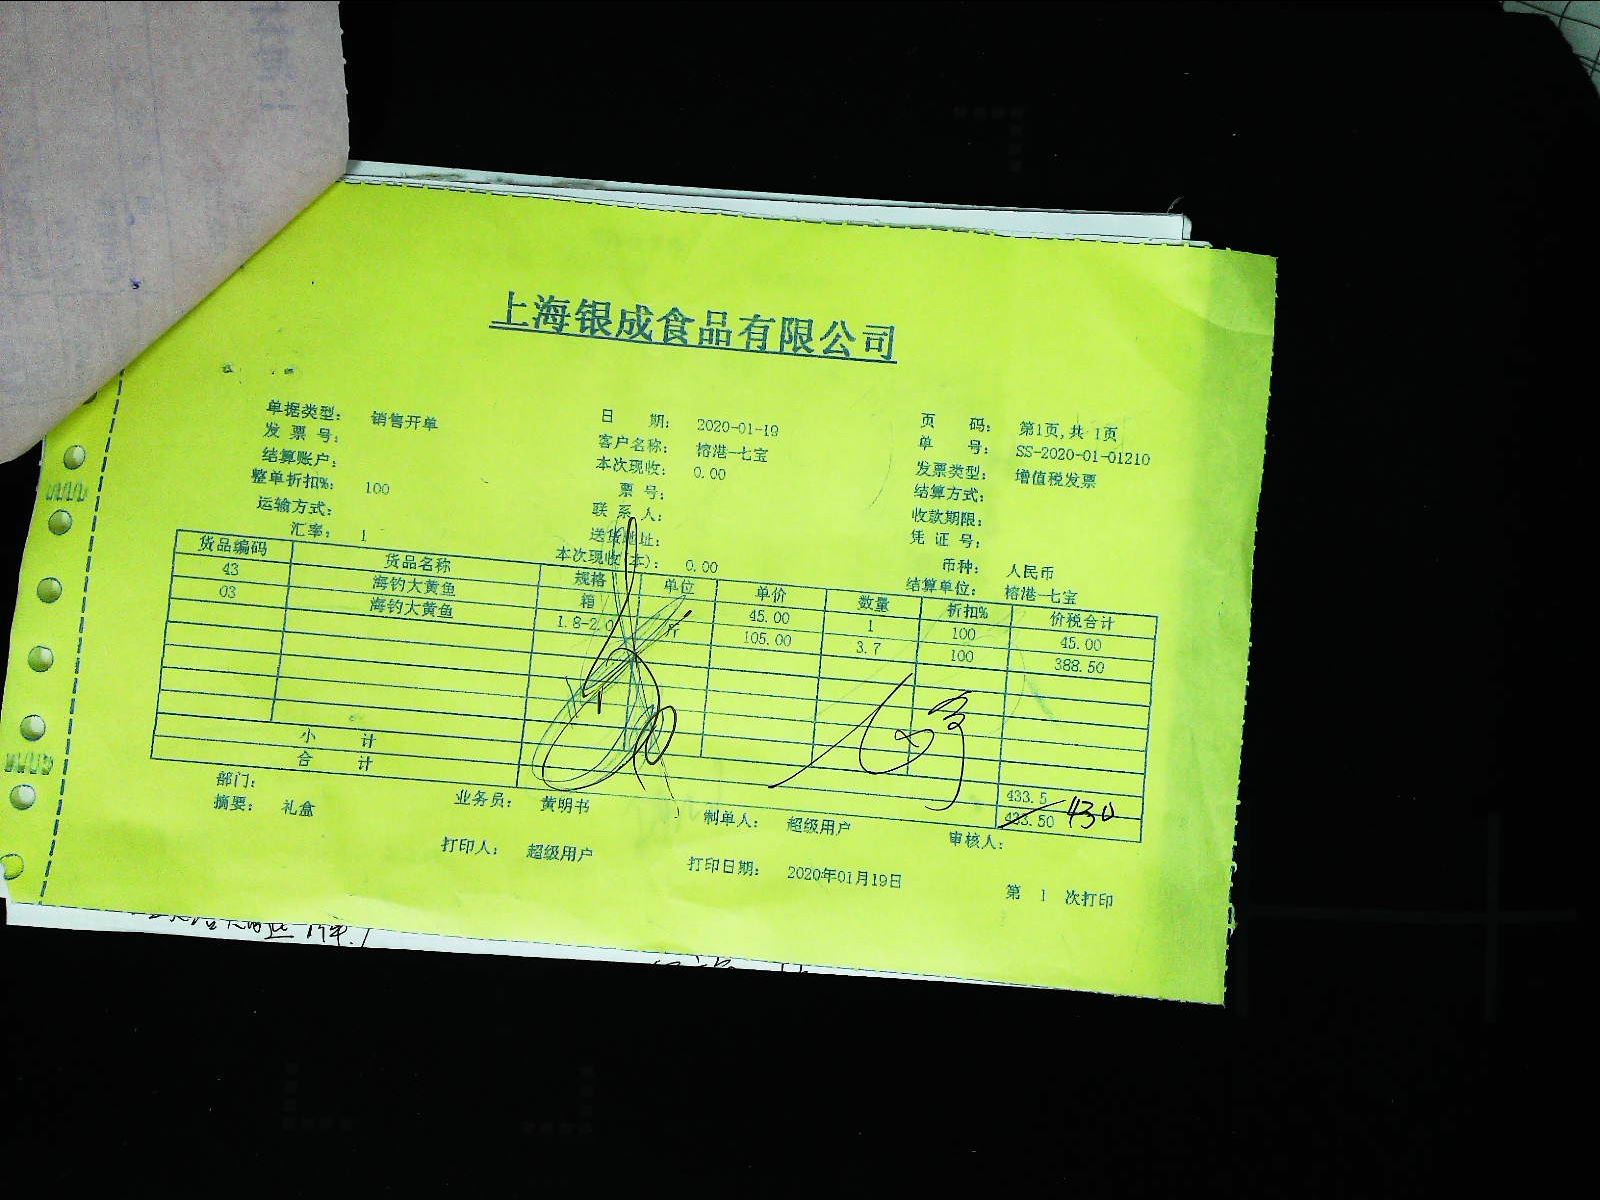 上海银成食品有限公司
单据类型： 销售开单 日 期： 2020-01-19 页 码： 第1页,共 1页
发 票 号： 客户名称： 榕港-七宝 单 号： SS-2020-01-01210
结算账户： 本次现收： 0.00 发票类型： 增值税发票
整单折扣%： 100 票 号： 结算方式：
运输方式： 联 系 人： 收款期限：
汇率： 1 送货地址： 凭 证 号：
本次现收(本)： 0.00 币种： 人民币
结算单位： 榕港-七宝
货品编码 货品名称 规格 单位 单价 数量 折扣% 价税合计
43 海钓大黄鱼 箱 45.00 1 100 45.00
03 海钓大黄鱼 1.8-2.0 斤 105.00 3.7 100 388.50
小 计 433.5
合 计 433.50 430
部门： 业务员： 黄明书 制单人： 超级用户 审核人：
摘要： 礼盒
打印人： 超级用户 打印日期： 2020年01月19日 第 1 次打印